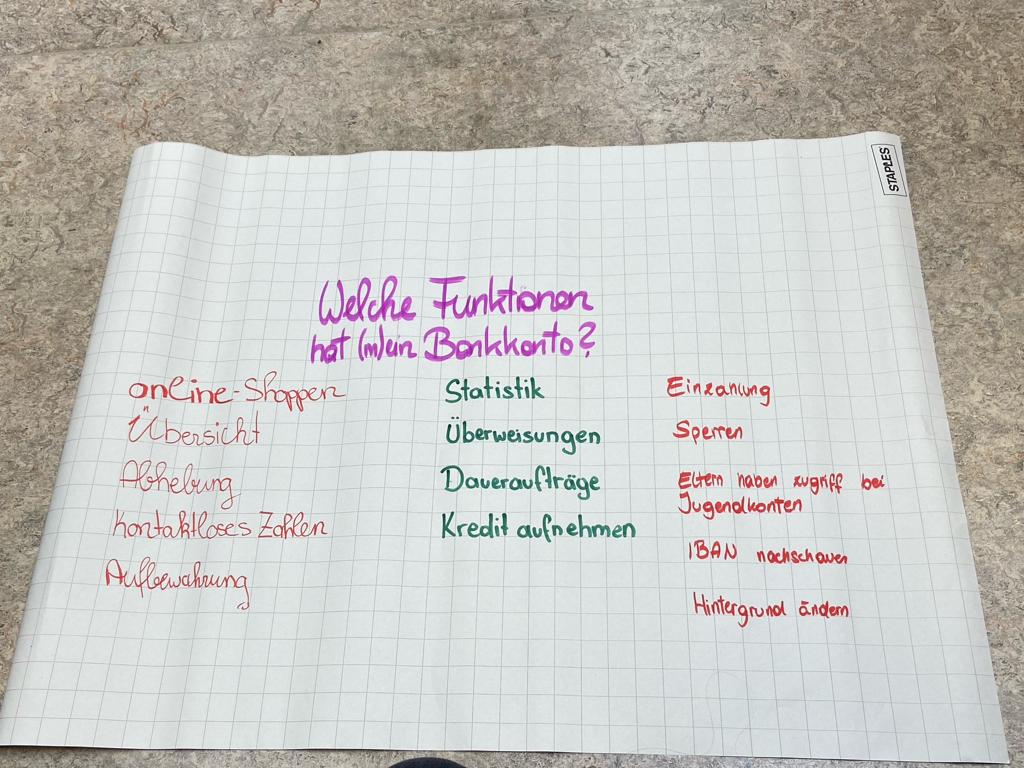 STAPLES
Welche Funktionen
hat (m)ein Bankkonto?
online-Shoppen
Übersicht
Abhebung
Kontaktloses Zahlen
Aufbewahrung
Statistik
Überweisungen
Daueraufträge
Kredit aufnehmen
Einzahlung
Sperren
Eltern haben zugriff bei
Jugendkonten
IBAN nachschauen
Hintergrund ändern